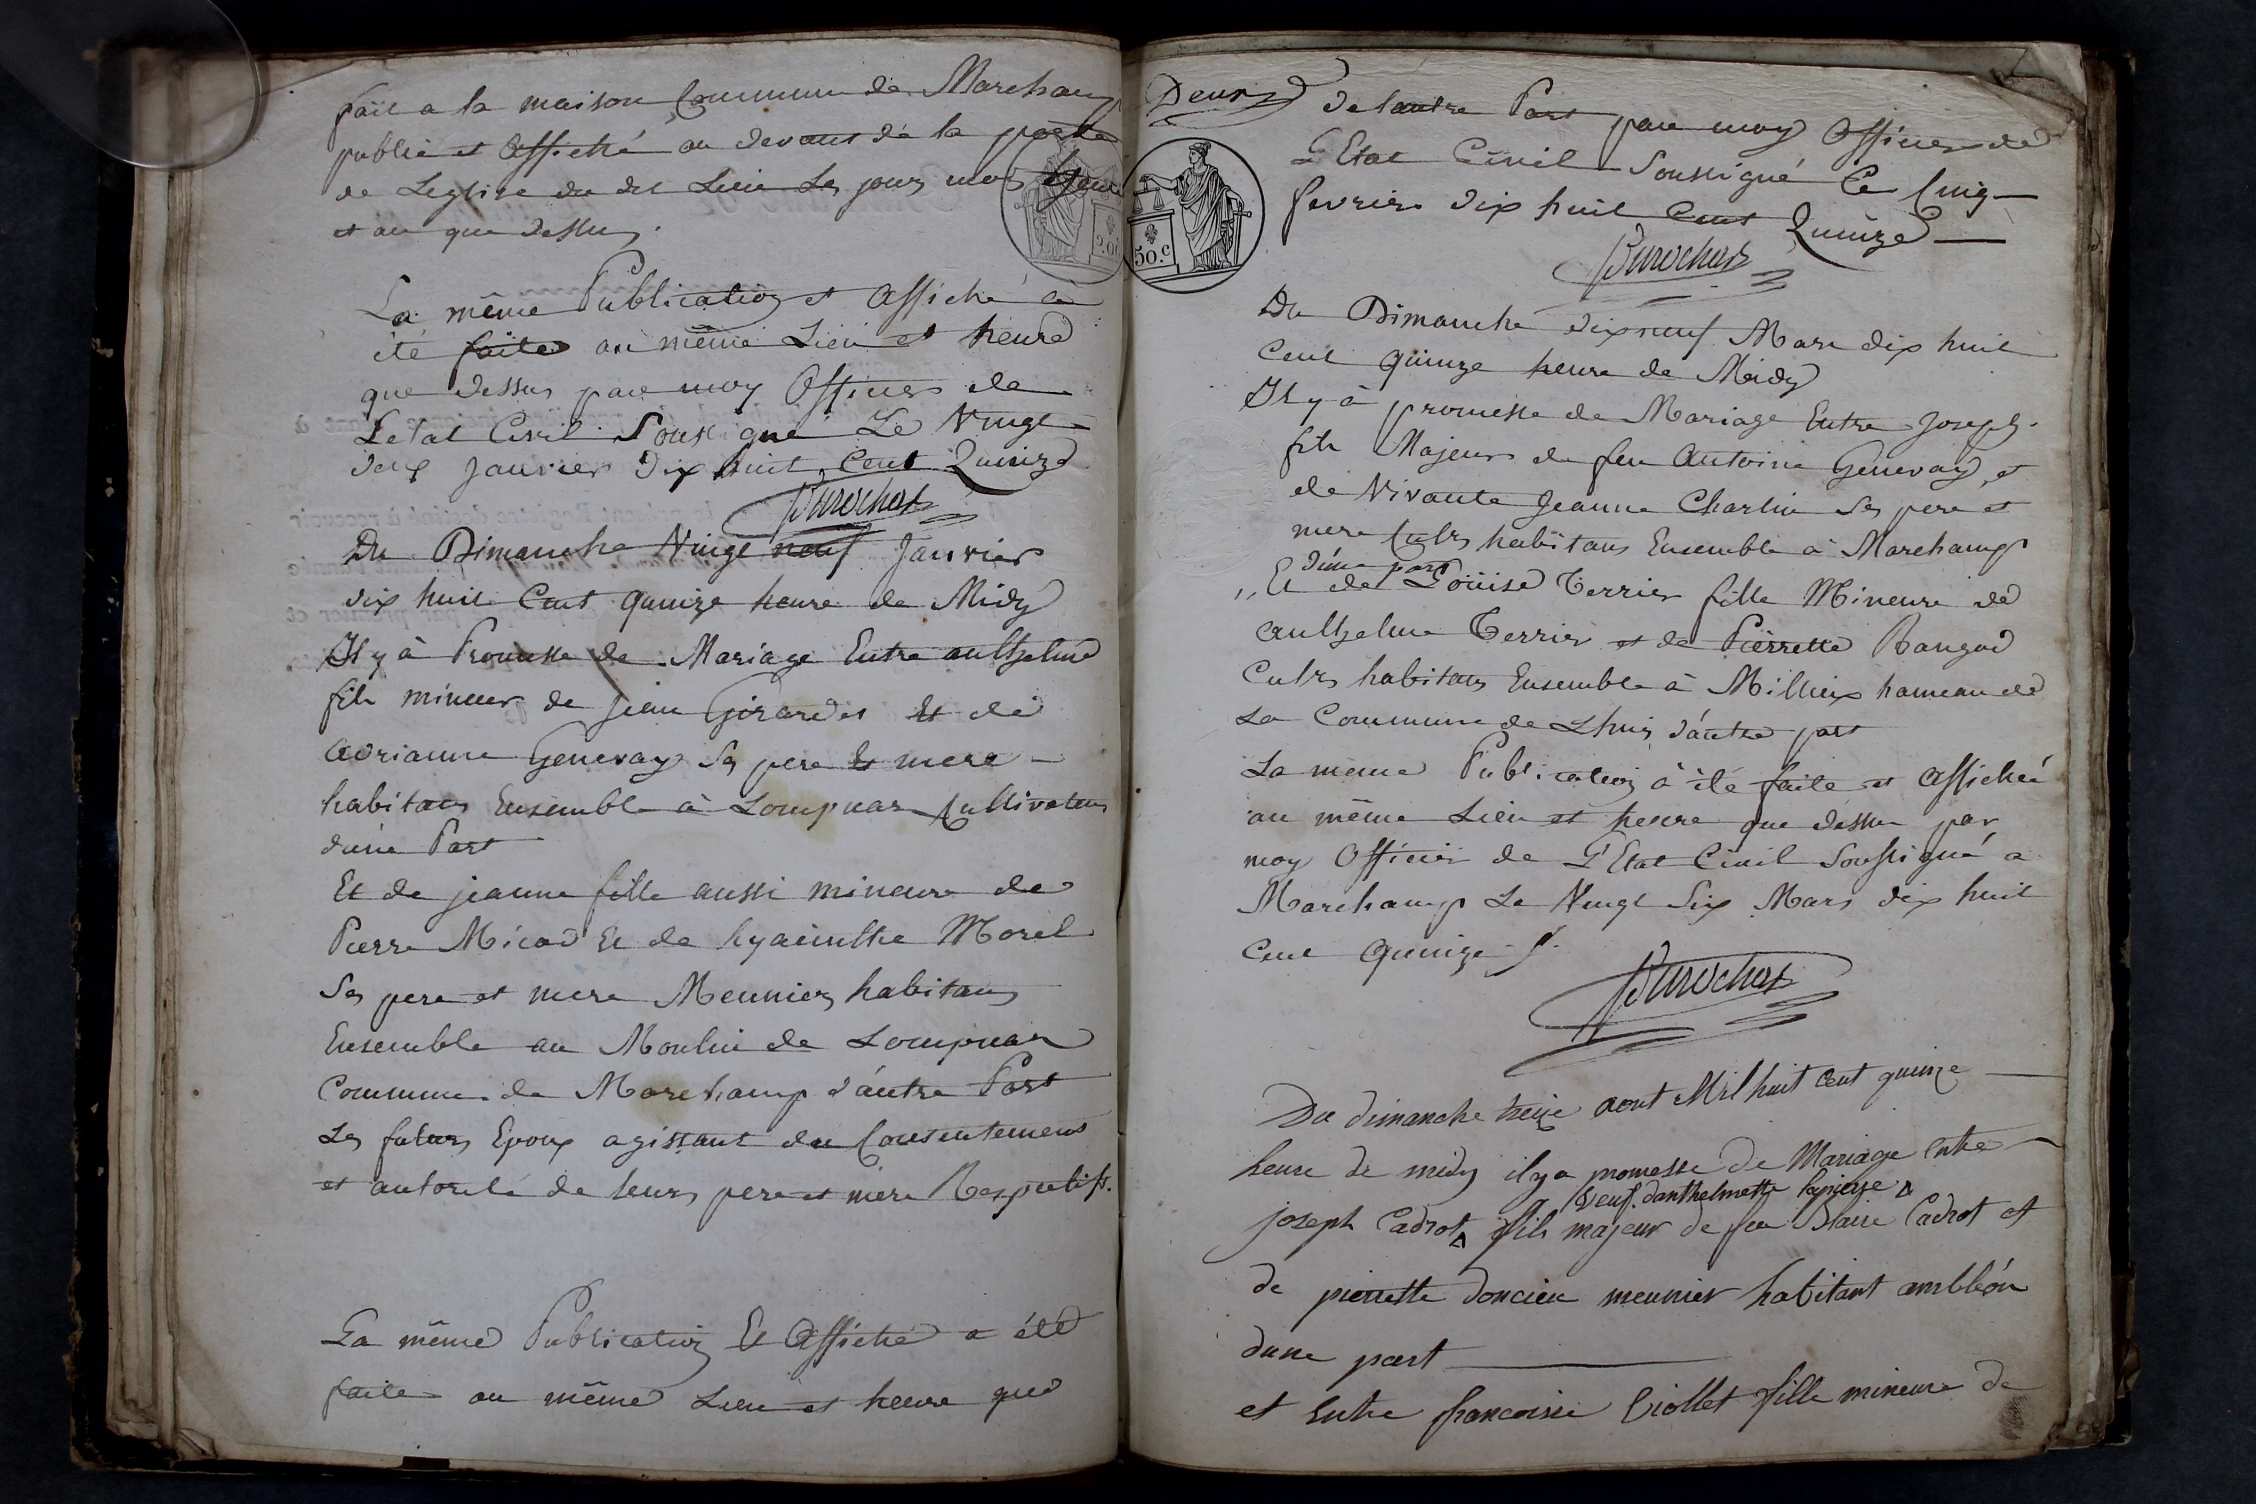 fait a la maison Commune de Marchamp
publié et affiché au devant de la porte
de Leglise du dit Lieu Les jour mois heure
et an que dessus.
La même Publication et affiche à
été faite au même Lieu et heure
que dessus par moy Officier de
Letat Civil Soussigné Le Vingt
deux Janvier dix huit Cent Quinze
Durochat
Du Dimanche Vingt neuf Janvier
dix huit Cent quinze heure de Midy
Il y à Promesse de Mariage Entre anthelme
fils mineur de jean Girardet Et de
adrianne Genevay Ses pere Et mere
habitans Ensemble à Lompnas Cultivateurs
d'une Part
Et de jeanne fille aussi mineure de
Pierre Micod Et de hyacinthe Morel
Ses pere et mere Meunier habitans
Ensemble au Moulin de Lompnas
Commune de Marchamp d'autre Part
Les futurs Epoux agissant du Consentement
et autorité de leurs pere et mere Respectifs.
La même Publication Et Affiche a été
faite au même Lieu et heure que
Deux
50.c
de lautre Part par moy Officier de
L'Etat Civil Soussigné Ce Cinq
fevrier dix huit Cent Quinze
Durochat
Du Dimanche dix neuf Mars dix huit
Cent quinze heure de Midy
Il y à promesse de Mariage Entre Joseph
fils Majeur de feu Antoine Genevay et
de Vivante Jeanne Charlin Ses pere et
mere Cultrs habitans Ensemble à Marchamp
d'une part
Et de Loüise Terrier fille Mineure de
anthelme Terrier et de Pierrette Rangod
Cultrs habitans Ensemble à Millieux hameau de
La Commune de Lhuis d'autre part
La meme Publication à été faite et Affichée
au même Lieu et heure que dessus par
moy Officier de L'Etat Civil Soussigné a
Marchamp Le Vingt Six Mars dix huit
Cent Quinze
Durochat
Du dimanche treize aout Mil huit Cent quinze
heure de midy il y a promesse de Mariage Entre
veuf d'anthelmette
joseph Cadrot fils majeur de feu Blaise Cadrot et
de pierrette doncieu meunier habitant ambléon
dune part
et Entre francoise Viollet fille mineure de